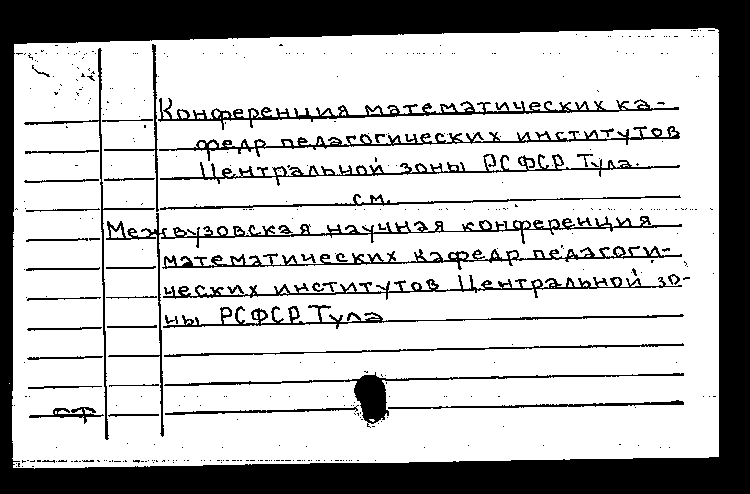 Конференция математических ка-
федр педагогических институтов
Центральной зоны РСФСР. Тула.
см.
Межвузовская научная конференция
математических кафедр педагоги-
ческих институтов Центральной зо-
ны РСФСР. Тула